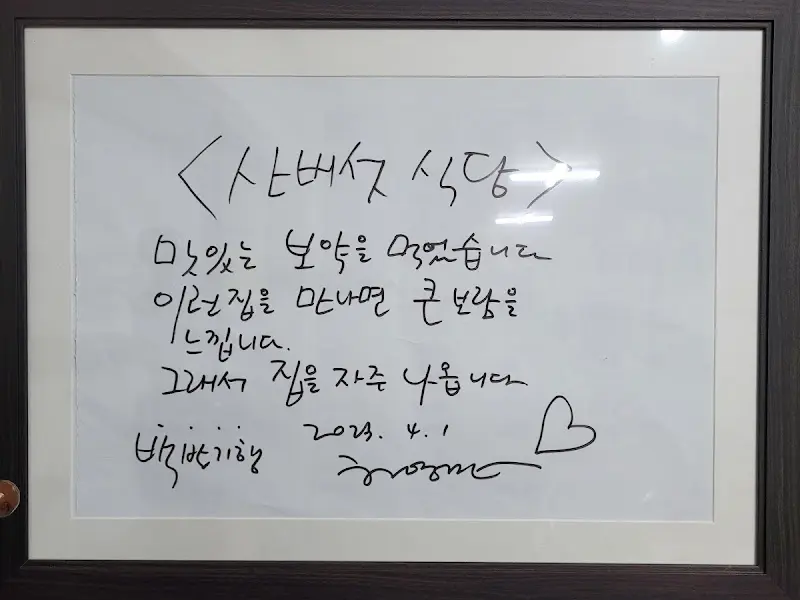 <산버섯 식당>
맛있는 보약을 먹었습니다
이런집을 만나면 큰 보람을
느낍니다.
그래서 집을 자주 나옵니다
백반기행 2023. 4. 1
허영만